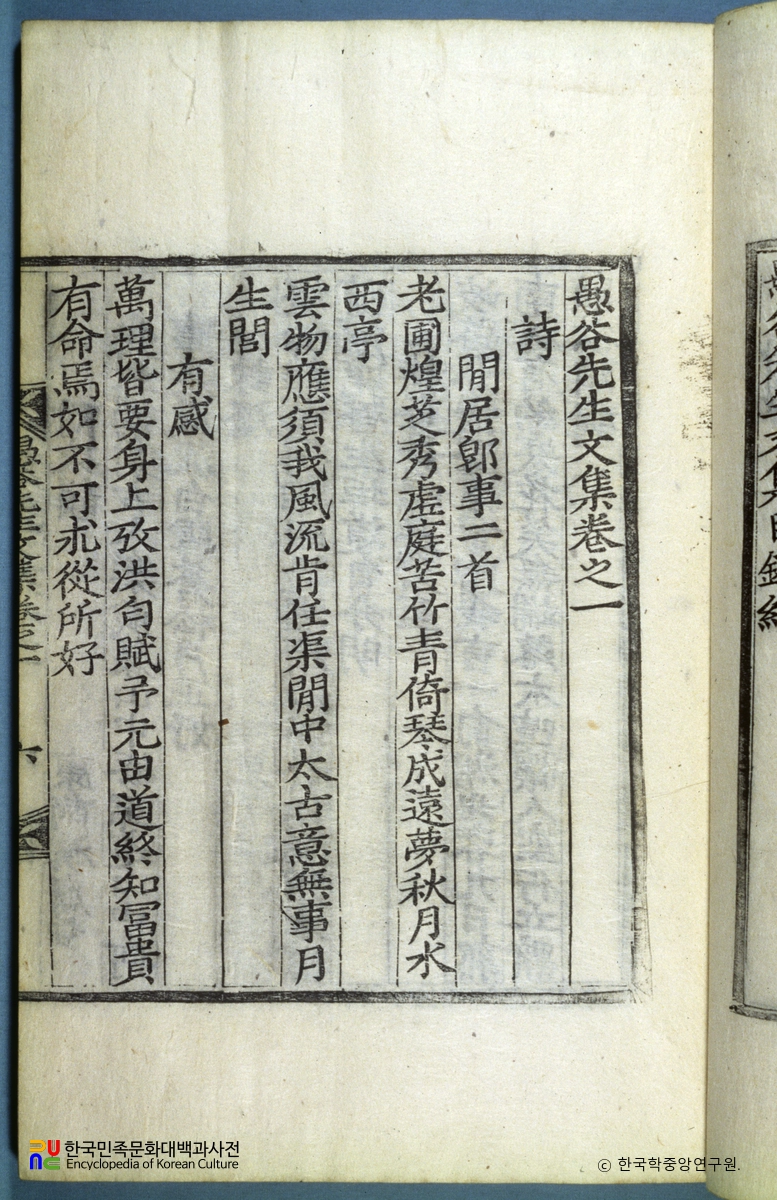 愚谷先生文集卷之一
詩
閒居卽事二首
老圃煌芝秀虛庭苦竹青倚琴成遠夢秋月水
西亭
雲物應須我風流肯任渠閒中太古意無事月
生閭
有感
萬理皆要身上攷洪勻賦予元由道終知冨貴
有命焉如不可求從所好
愚谷先生文集卷之一
한국민족문화대백과사전
Encyclopedia of Korean Culture
ⓒ 한국학중앙연구원.